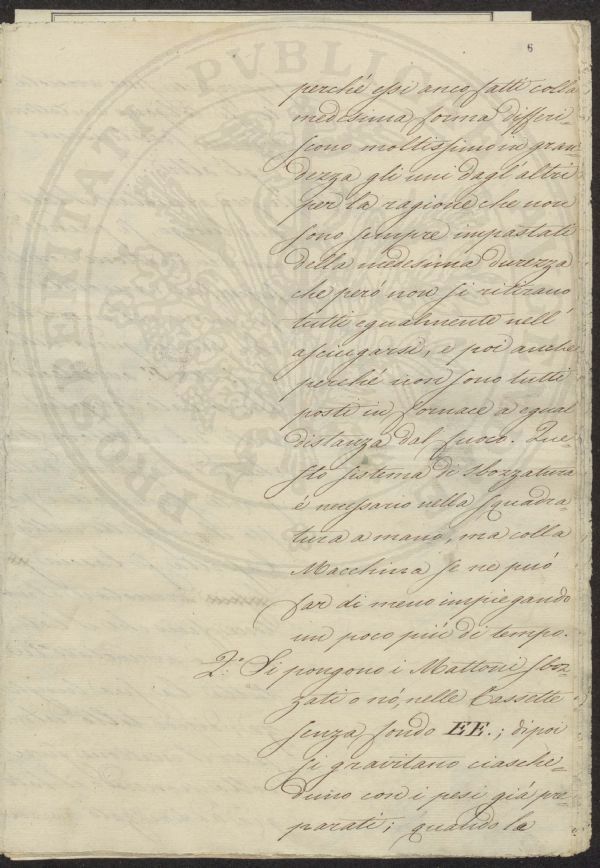 6
perché essi anco fatti colla
medesima forma differi=
scono moltissimo in gran=
dezza gli uni dagl'altri
per la ragione che non
sono sempre impastati
della medesima durezza
che però non si ritirano
tutti egualmente nell'
asciugarsi, e poi anche
perché non sono tutti
posti in fornace a egual
distanza dal fuoco. Que=
sto sistema di sbozzatura
è necessario nella squadra=
tura a mano, ma colla
Macchina se ne può
far di meno impiegando
un poco più di tempo.
2.° Si pongono i Mattoni sboz=
zati o nó, nelle Cassette
senza fondo EE.; dipoi
si gravitano ciasche=
duno con i pesi già pre=
parati; quando la
PROSPERITATI PVBLICAE